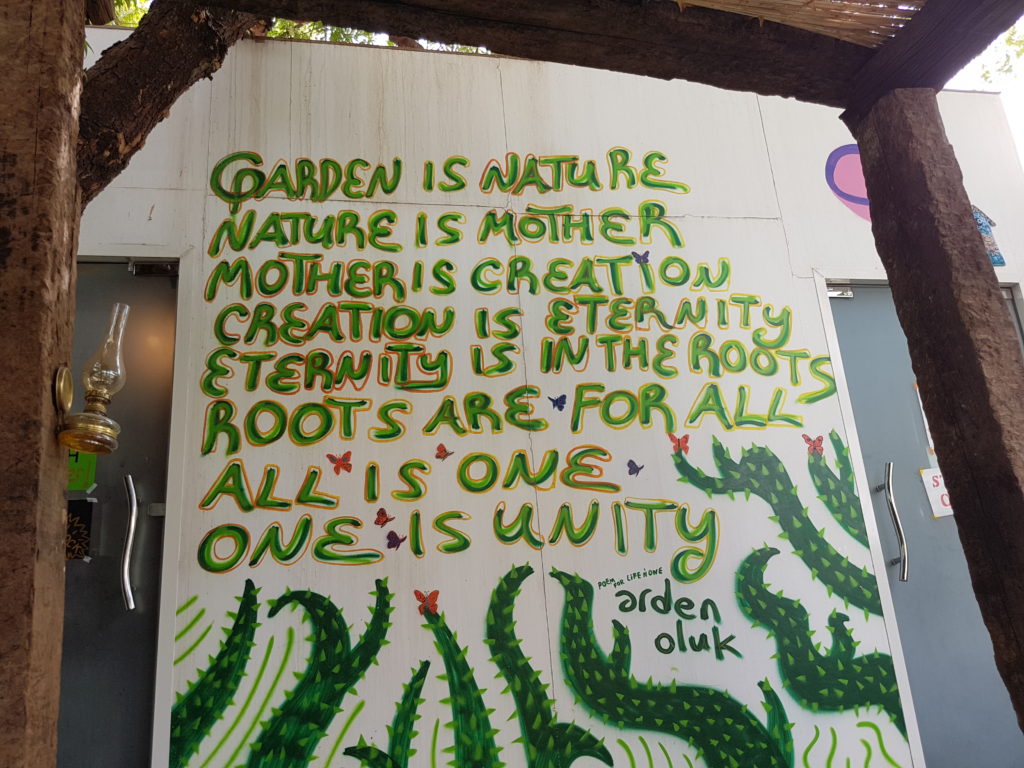 GARDEN IS NATURE
NATURE IS MOTHER
MOTHER IS CREATION
CREATION IS ETERNITY
ETERNITY IS IN THE ROOTS
ROOTS ARE FOR ALL
ALL IS ONE
ONE IS UNITY
POEM FOR LIFE N ONE
arden
oluk